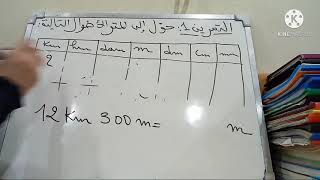 التمرين 1: حوّل إلى المتر الأطوال التالية:
Km hm dam m dm cm mm
2
12 Km 300 m= m